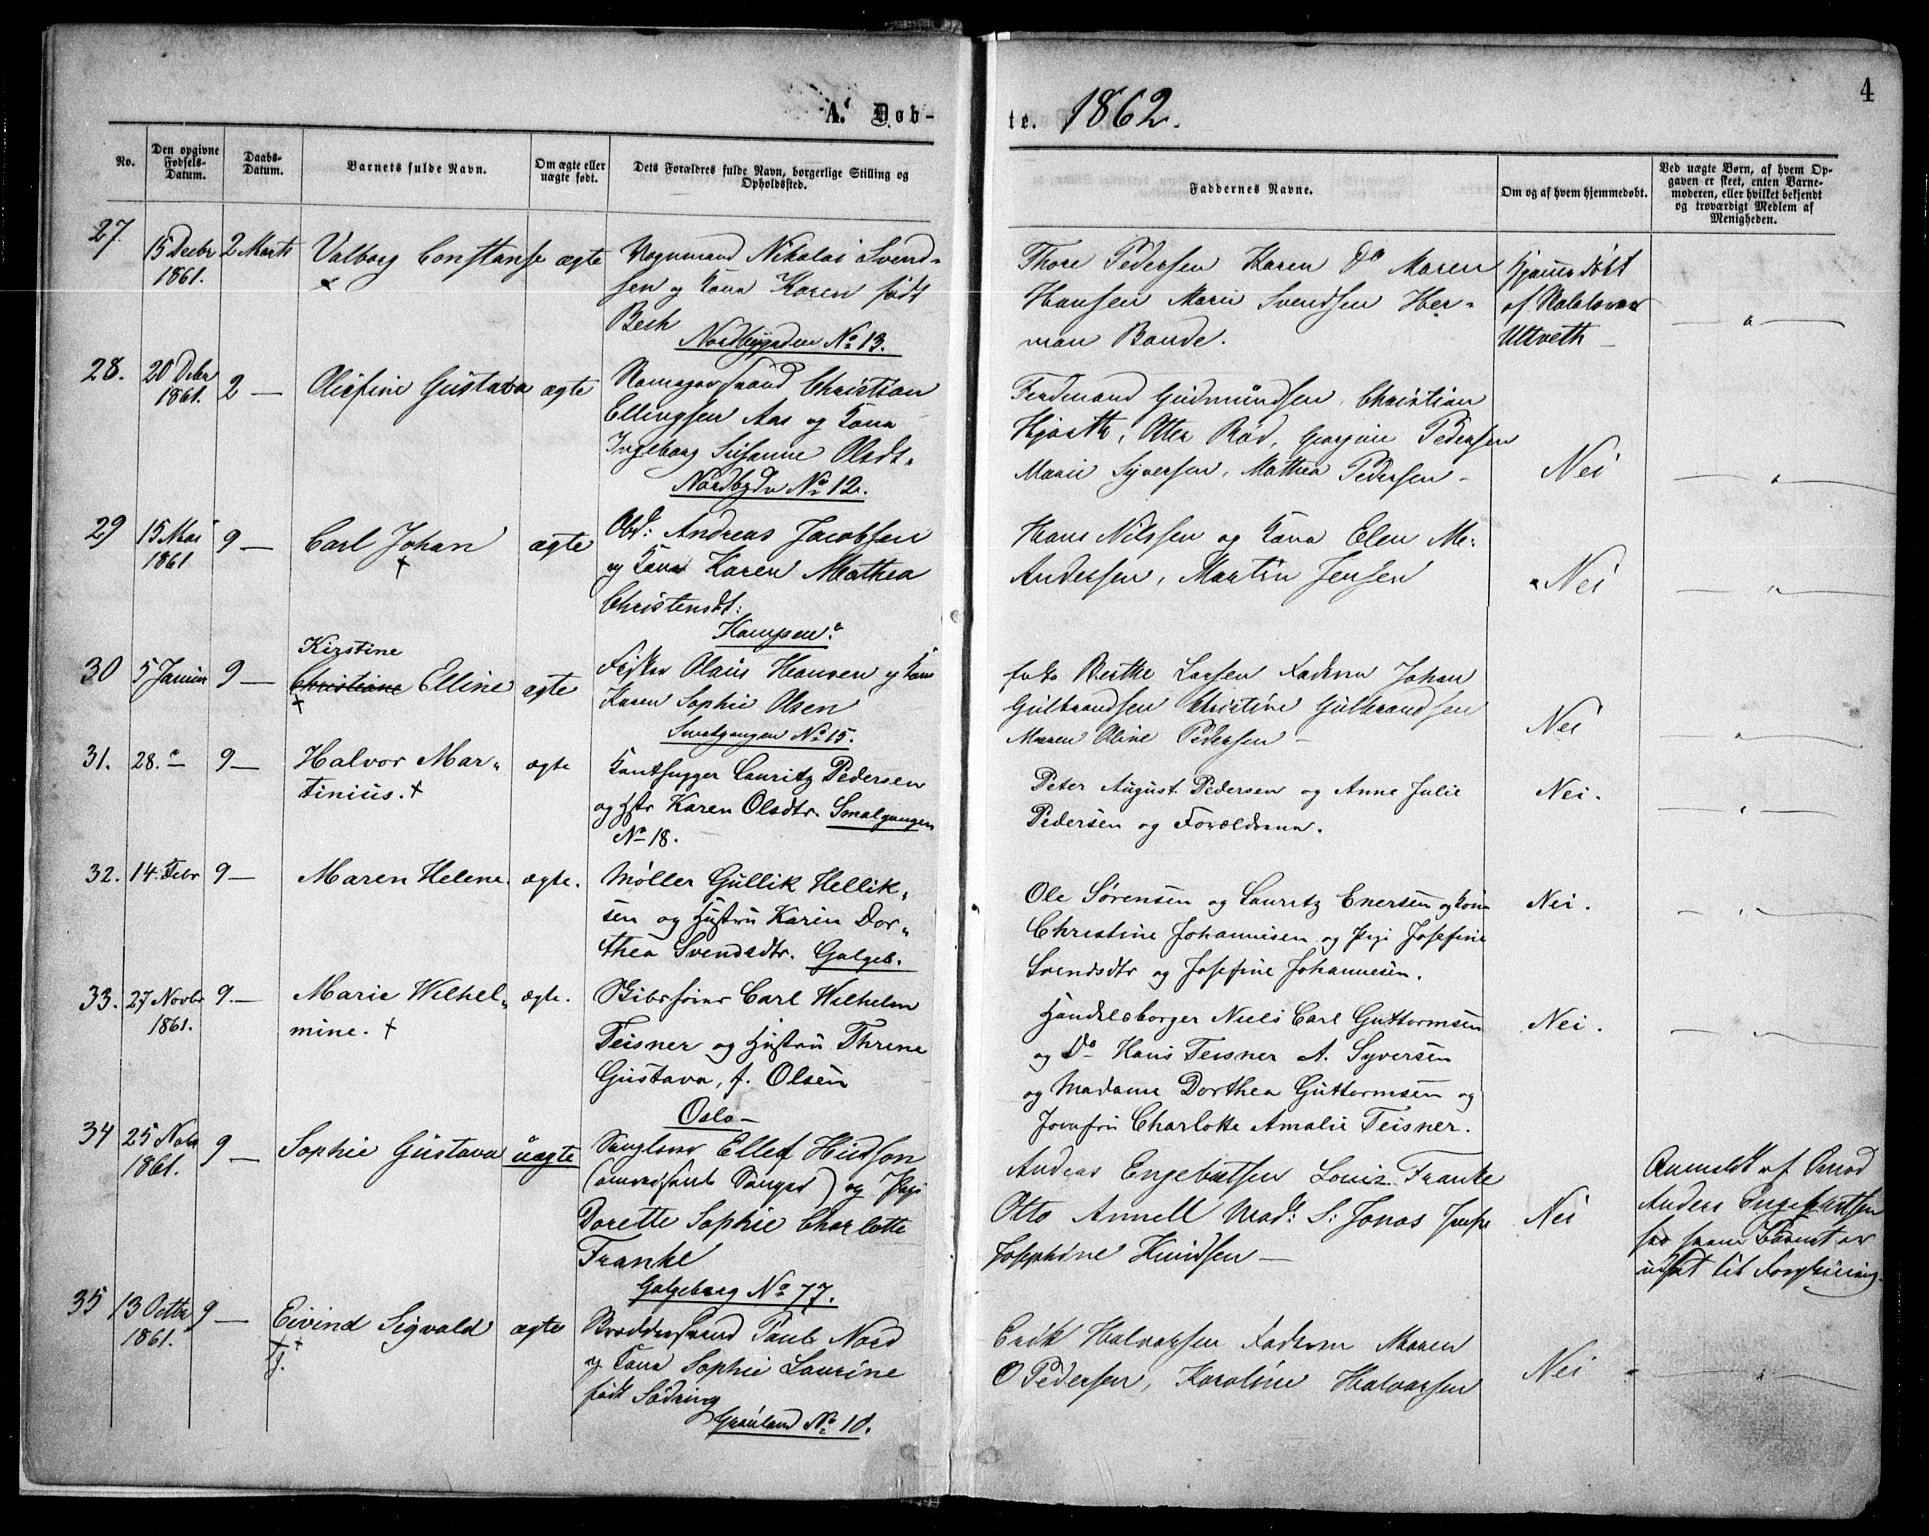 A. Døb-
te. 1862.
4
No.
Den opgivne Fødsels-Datum.
Daabs-Datum.
Barnets fulde Navn.
Om ægte eller uægte født.
Dets Forældres fulde Navn, borgerlige Stilling og Opholdssted.
Faddernes Navne.
Om og af hvem hjemmedøbt.
Ved uægte Børn, af hvem Op-
gaven er skeet, enten Barne-
moderen, eller hvilket bekjendt
og troværdigt Medlem af
Menigheden.
27. 15 Decbr 2 Marts Valborg Constanse ægte Vognmand Nikolai Svend-
1861. sen og Kona Karen født
Bech
Nordbygaden No 13.
Thore Pedersen Karen Do Maren
Hansen Marie Svendsen Her-
man Bande.
Hjemmedøbt
af
Uttveth
28. 20 Debr 2 — Olefine Gustava ægte Christian
1861. Ellingsen Aas og Kona
Ingeborg Susanne Olsdt.
Nordbgdn No 12.
Ferdinand Gudmundsen, Christian
Hjorth, Otter Rød, Georgine Pedersen
Marie Syversen, Mathea Pedersen - Nei
29 15 Mai 9 — Carl Johan ægte Abd: Andreas Jacobsen
1861 og Kona Karen Mathea
Christensdt:
Kampen.
Hans Nilssen og Kona Elen M.
Andersen, Martin Jensen Nei
Kirstine
30 5 Januar 9 — Christiane Elline ægte Olaus Hansen og Kona
Karen Sophie Olsen
Smalgangen No 15.
Berthe Larsen Johan
Gulbrandsen Christine Gulbrandsen
Maren Oline Pedersen - Nei
31. 28. — 9 — Halvor Mar- ægte Lauritz Pedersen
tinius. og Hstr Karen Olsdtr. Smalgangen
No 18.
Peter August Pedersen og Anne Julie
Pedersen og Forældrene. Nei.
32. 14. Febr 9 — Maren Helene. ægte. Møller Gullik Hellik-
sen og Hustru Karin Dor-
thea Svendsdtr. Galgeb.
Ole Sørensen og Lauritz Enersen og Kone
Christine Johannesen og Pige Josefine
Svendsdtr og Josefine Johannesen. Nei.
33. 27 Novbr 9. — Marie Wilhel- ægte. Carl Wilhelm
1861. mine. Teisner og Hustru Thrine
Gustava, f. Olsen
Oslo —
Handelsborger Niels Carl Guttormsen
og Do Hans Teisner A. Syversen
og Madame Dorthea Guttormsen og
Jomfru Charlotte Amalie Teisner. Nei.
34 25 Nobr 9 — Sophie Gustava uægte Ellef Hudson
1861. og Pige
Dorette Sophie Charlotte
Franke
Galgeberg No 77.
Andreas Engebretsen Louis Franke
Otto Annell Mad: S: Jonas
Josephine Knudsen — Nei
Anmeldt af
Anders Engebretsen
Barnet er
udsat til
35 13 Octbr 9 — Eivind Sigvald ægte Paul Nord
1861. og Kona Sophie Laurine
født Sødring
Grønland No 10.
Erik Halvorsen Maren
O Pedersen, Karoline Halvorsen Nei